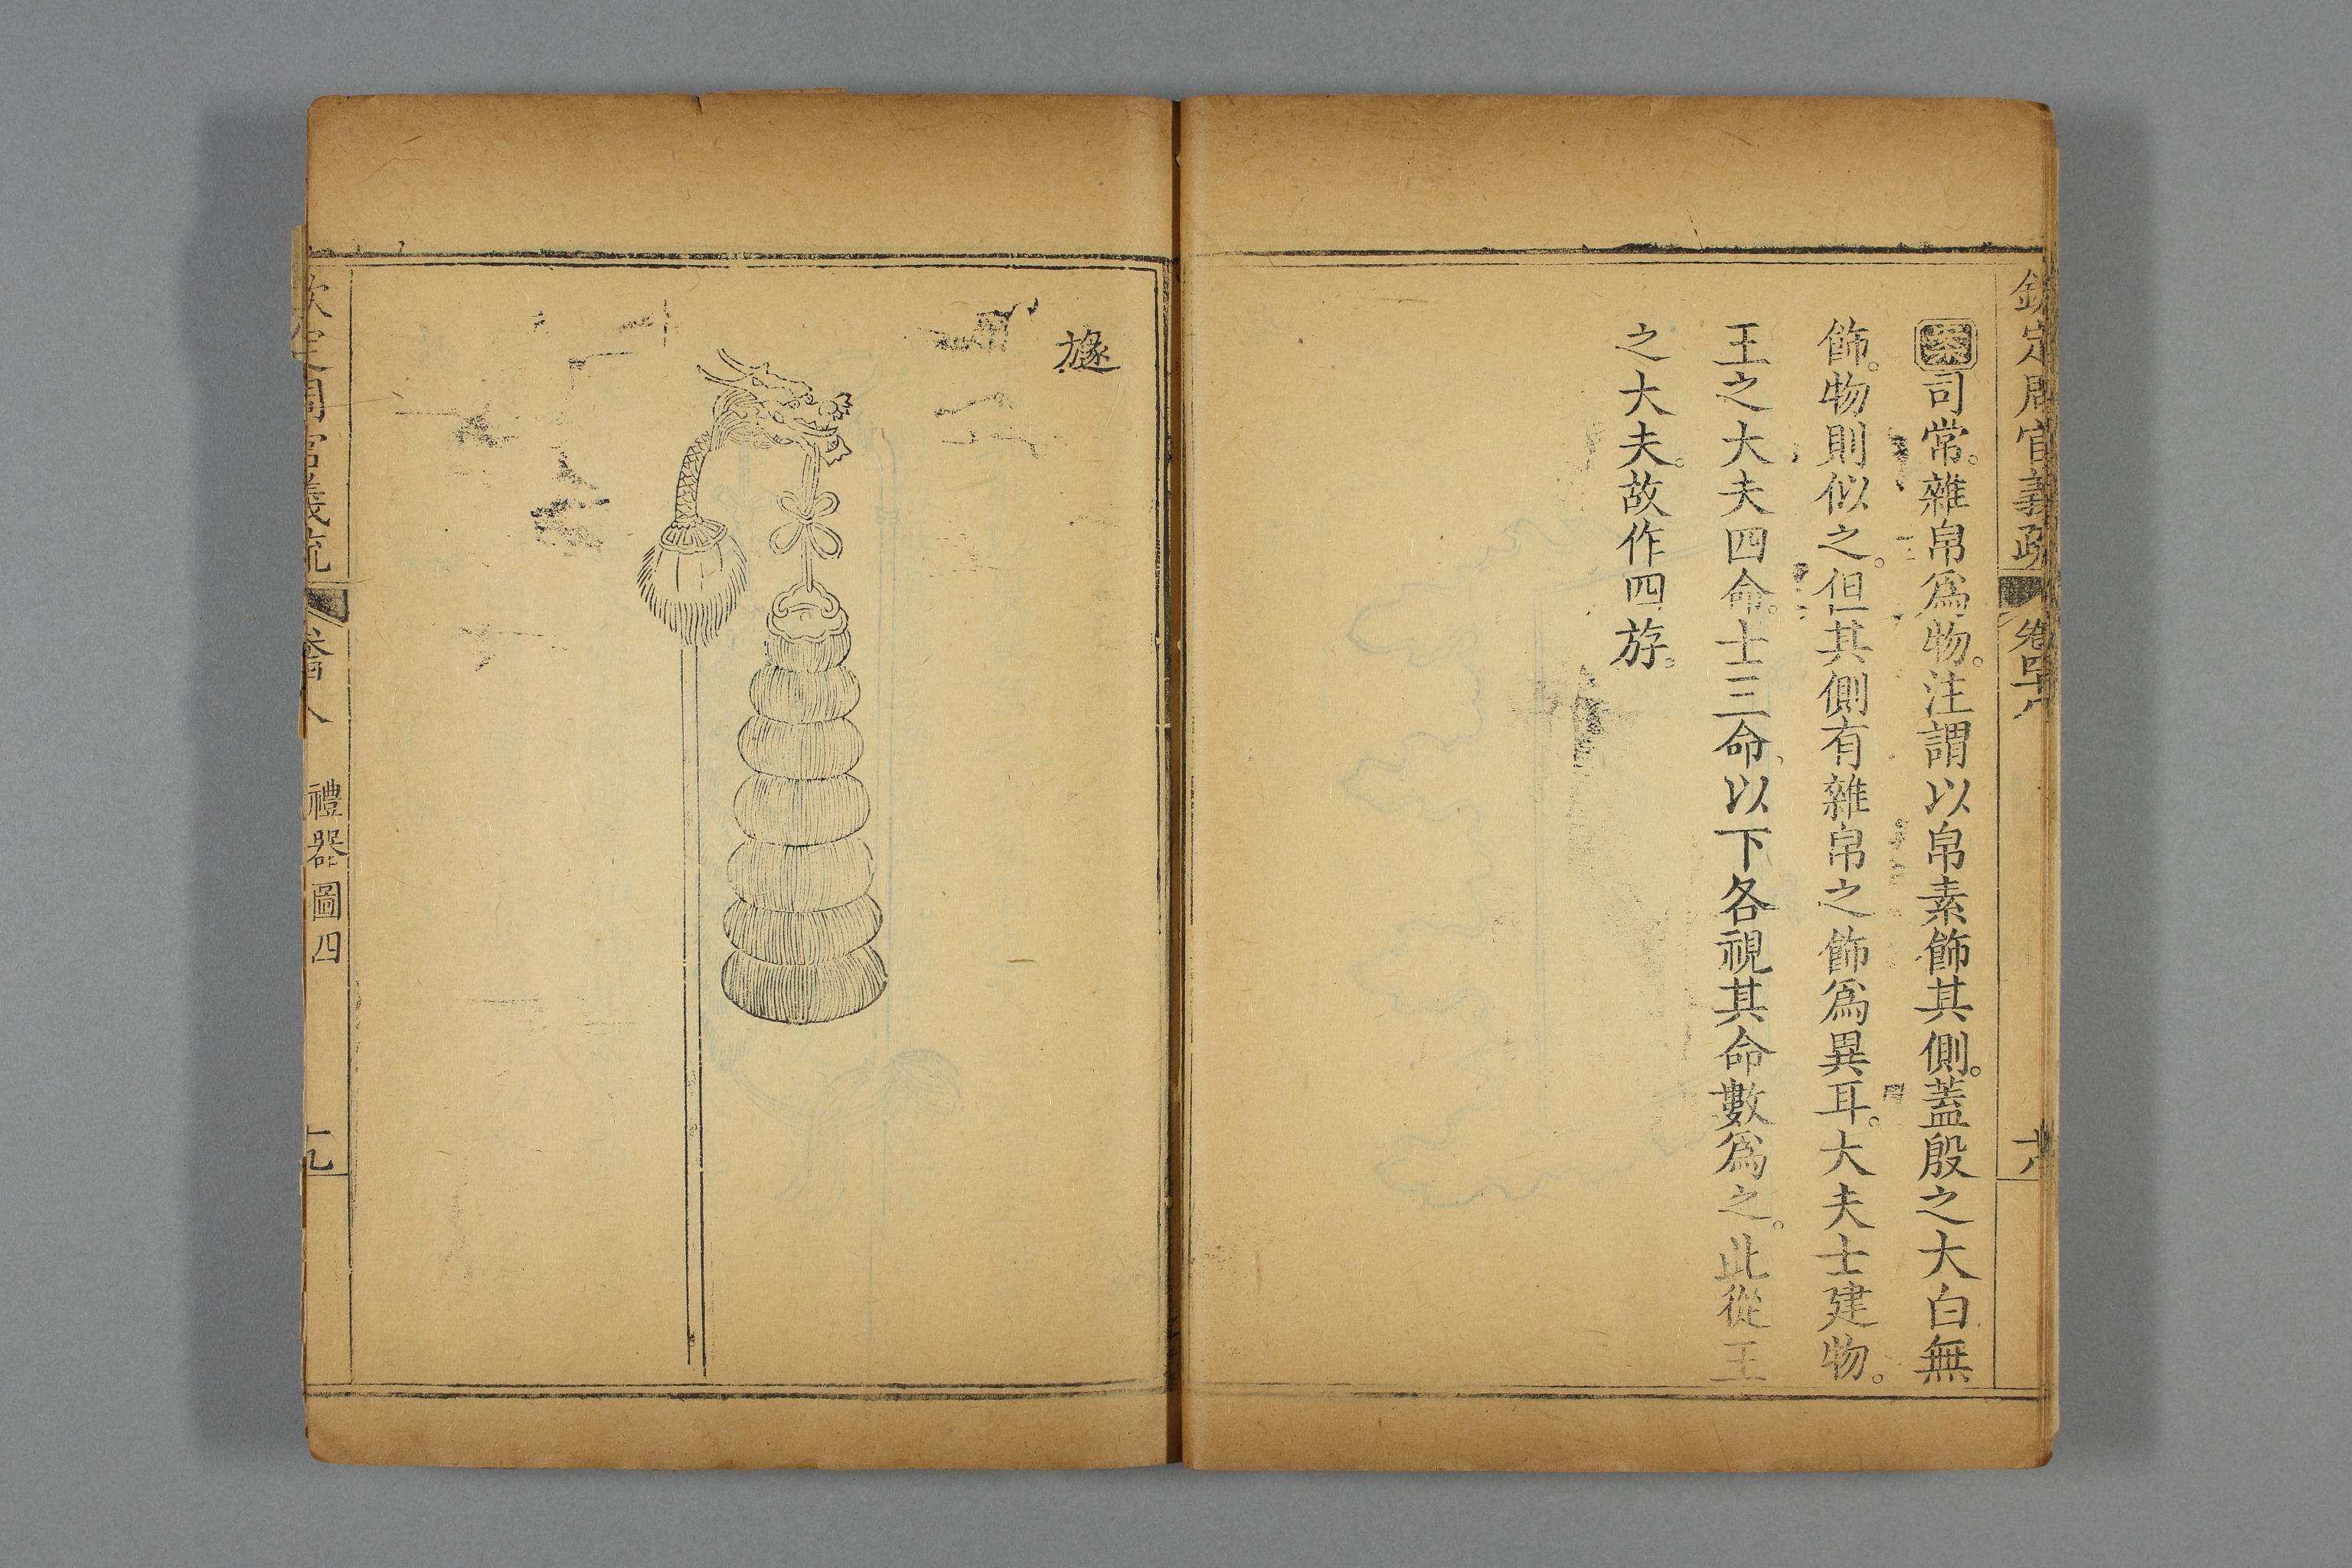 欽定周官義疏 卷四十八 十八
案司常。雜帛爲物。注謂以帛素飾其側。蓋殷之大白無
飾。物則似之。但其側有雜帛之飾爲異耳。大夫士建物。
王之大夫四命。士三命、以下各視其命數爲之。此從王
之大夫。故作四斿。
旞
欽定周官義疏 卷四十八 禮器圖四 十九